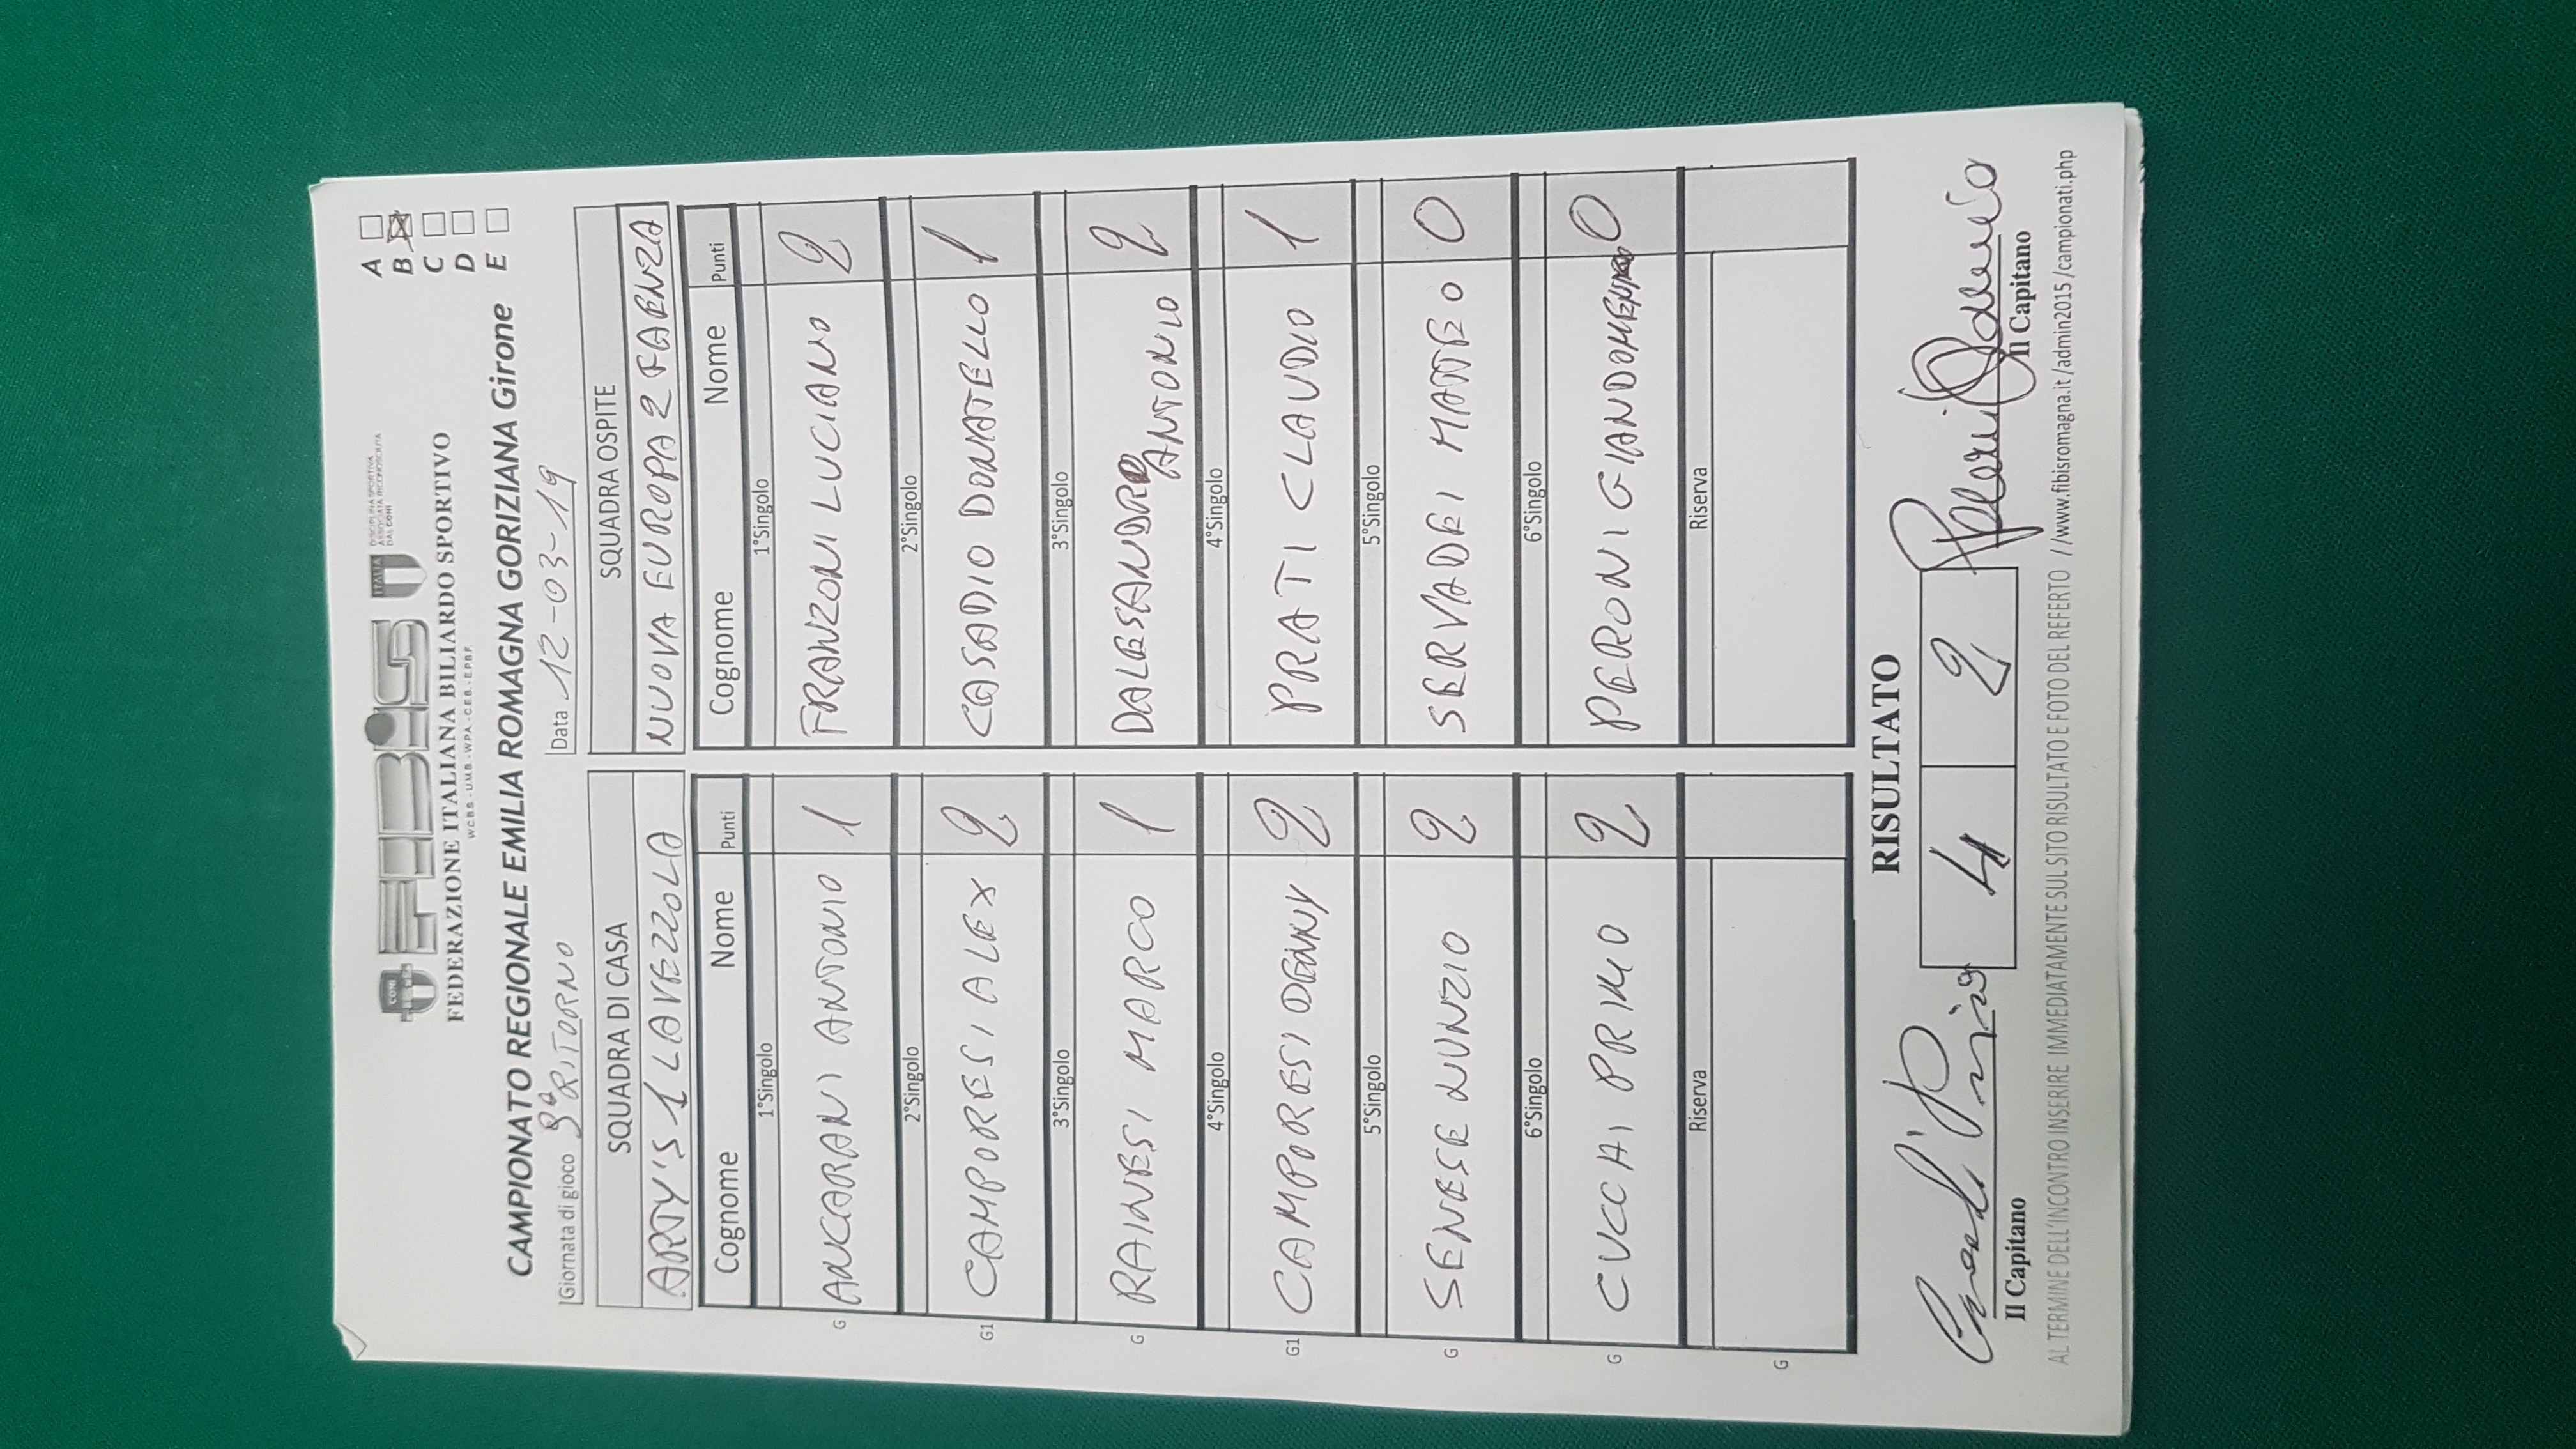 CONI
FIBIS
ITALIA
DISCIPLINA SPORTIVA
ASSOCIATA RICONOSCIUTA
DAL CONI
FEDERAZIONE ITALIANA BILIARDO SPORTIVO
W.C.B.S. - U.M.B. - W.P.A. - C.E.B. - E.P.B.F.
A
B
C
D
E
CAMPIONATO REGIONALE EMILIA ROMAGNA GORIZIANA Girone
Giornata di gioco 9ª RITORNO Data 12-03-19
SQUADRA DI CASA SQUADRA OSPITE
ARTY'S 1 LAVEZZOLA NUOVA EUROPA 2 FAENZA
Cognome Nome Punti Cognome Nome Punti
1°Singolo 1°Singolo
G ANCARANI ANTONIO 1 FRANZONI LUCIANO 2
2°Singolo 2°Singolo
G1 CAMPORESI ALEX 2 CASADIO DONATELLO 1
3°Singolo 3°Singolo
G RAINESI MARCO 1 DALESANDRO ANTONIO 2
4°Singolo 4°Singolo
G1 CAMPORESI DENNY 2 PRATI CLAUDIO 1
5°Singolo 5°Singolo
G SENESE NUNZIO 2 SERVADEI MATTEO 0
6°Singolo 6°Singolo
G CUCCHI PRIMO 2 PERONI GIANDOMENICO 0
Riserva Riserva
G
RISULTATO
4 2
Il Capitano Il Capitano
AL TERMINE DELL'INCONTRO INSERIRE IMMEDIATAMENTE SUL SITO RISULTATO E FOTO DEL REFERTO //www.fibisromagna.it/admin2015/campionati.php